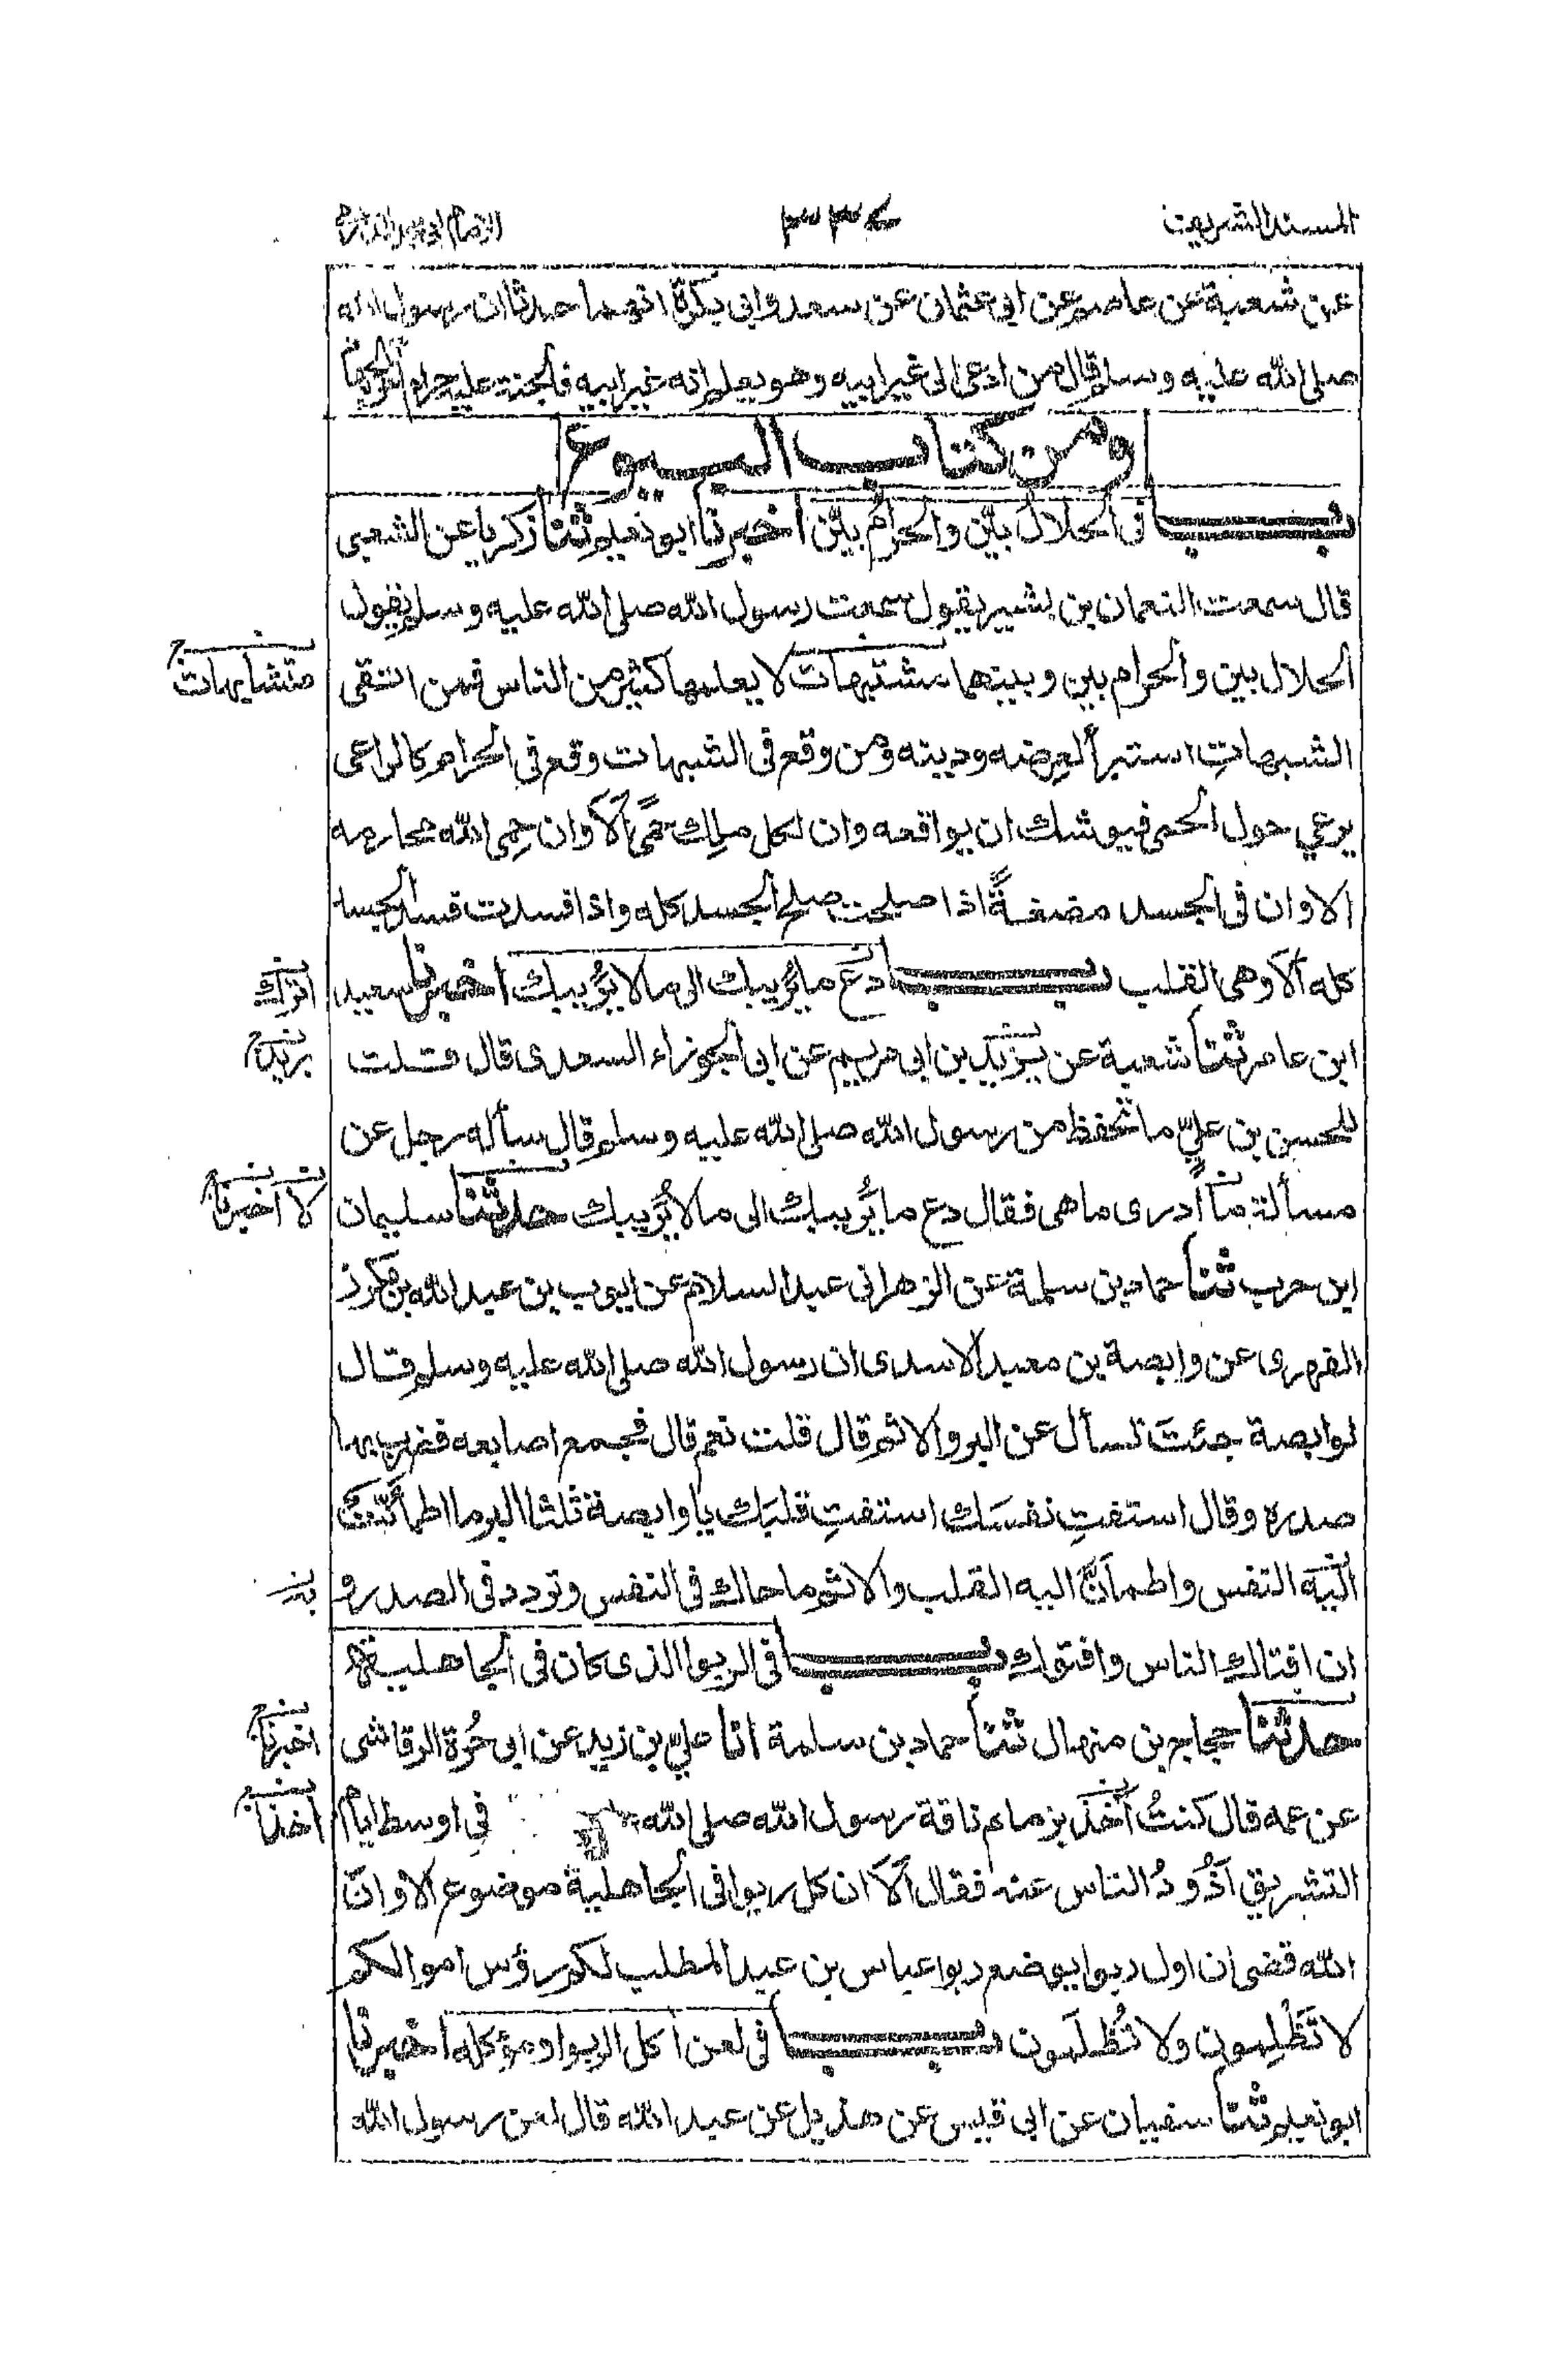 المسند الشريف
عن شعبة عن عاصم عن ابى عثمان عن سعد وابى بكرة انهما حدثا ان رسول الله
صلى الله عليه وسلم قال من ادعى الى غير ابيه وهو يعلم انه غير ابيه فالجنة عليه حرام
ومن كتاب البيوع
باب فى الحلال بيّن والحرام بيّن اخبرنا ابو نعيم ثنا زكريا عن الشعبى
قال سمعت النعمان بن بشير يقول سمعت رسول الله صلى الله عليه وسلم يقول
الحلال بين والحرام بين وبينهما مشتبهات لا يعلمها كثير من الناس فمن اتقى
متشابهات
الشبهاتِ استبرأ لعرضه ودينه ومن وقع فى الشبهات وقع فى الحرام كالراعى
يرعي حول الحمى فيوشك ان يواقعه وان لكل ملِك حمًى اَلَا وان حِمى الله محارمه
الا وان فى الجسد مضغةً اذا صلحت صلح الجسد كله واذا فسدت فسد الجسد
كله اَلَا وهى القلب باب دَع ما يُريبك الى ما لا يُريبك اخبرنا سعيد
اترك
ابن عامر ثنا شعبة عن يزيد بن ابى مريم عن ابى الجوزاء السعدى قال قلت
بريد
للحسن بن عليّ ما تحفظ من رسول الله صلى الله عليه وسلم قال سأله رجل عن
مسألة ما أدرى ما هى فقال دع ما يُريبك الى ما لا يُريبك حدثنا سليمان
لا اخبرنا
ابن حرب ثنا حماد بن سلمة عن الزهرانى عبد السلام عن ايوب بن عبد الله بن مكرز
الفهرى عن وابصة بن معبد الاسدى ان رسول الله صلى الله عليه وسلم قال
لوابصة جئتَ تسأل عن البر والاثم قال قلت نعم قال فجمع اصابعه فضرب بها
صدره وقال استفتِ نفسَك استفتِ قلبَك يا وابصة ثلثا البر ما اطمأنّت
اليه النفس واطمأنَّ اليه القلب والاثم ما حاك فى النفس وتردد فى الصدر و
ان افتاك الناس وافتوك باب فى الربوا الذى كان فى الجاهلية
حدثنا حجاج بن منهال ثنا حماد بن سلمة انا عليّ بن زيد عن ابى حُرّة الرقاشى
اخبرنا
عن عمه قال كنتُ آخذ بزمام ناقة رسول الله صلى الله فى اوسط ايام
آخذا
التشريق اَذُودُ الناس عنه فقال اَلَا ان كل ربوا فى الجاهلية موضوع الا وانّ
الله قضى ان اول ربوا يوضع ربوا عباس بن عبد المطلب لكم رؤس اموالكم
لا تَظْلِمون ولا تُظْلَمون باب فى لعن اكل الربوا ومؤكله اخبرنا
ابو نعيم ثنا سفيان عن ابى قيس عن هذيل عن عبد الله قال لعن رسول الله